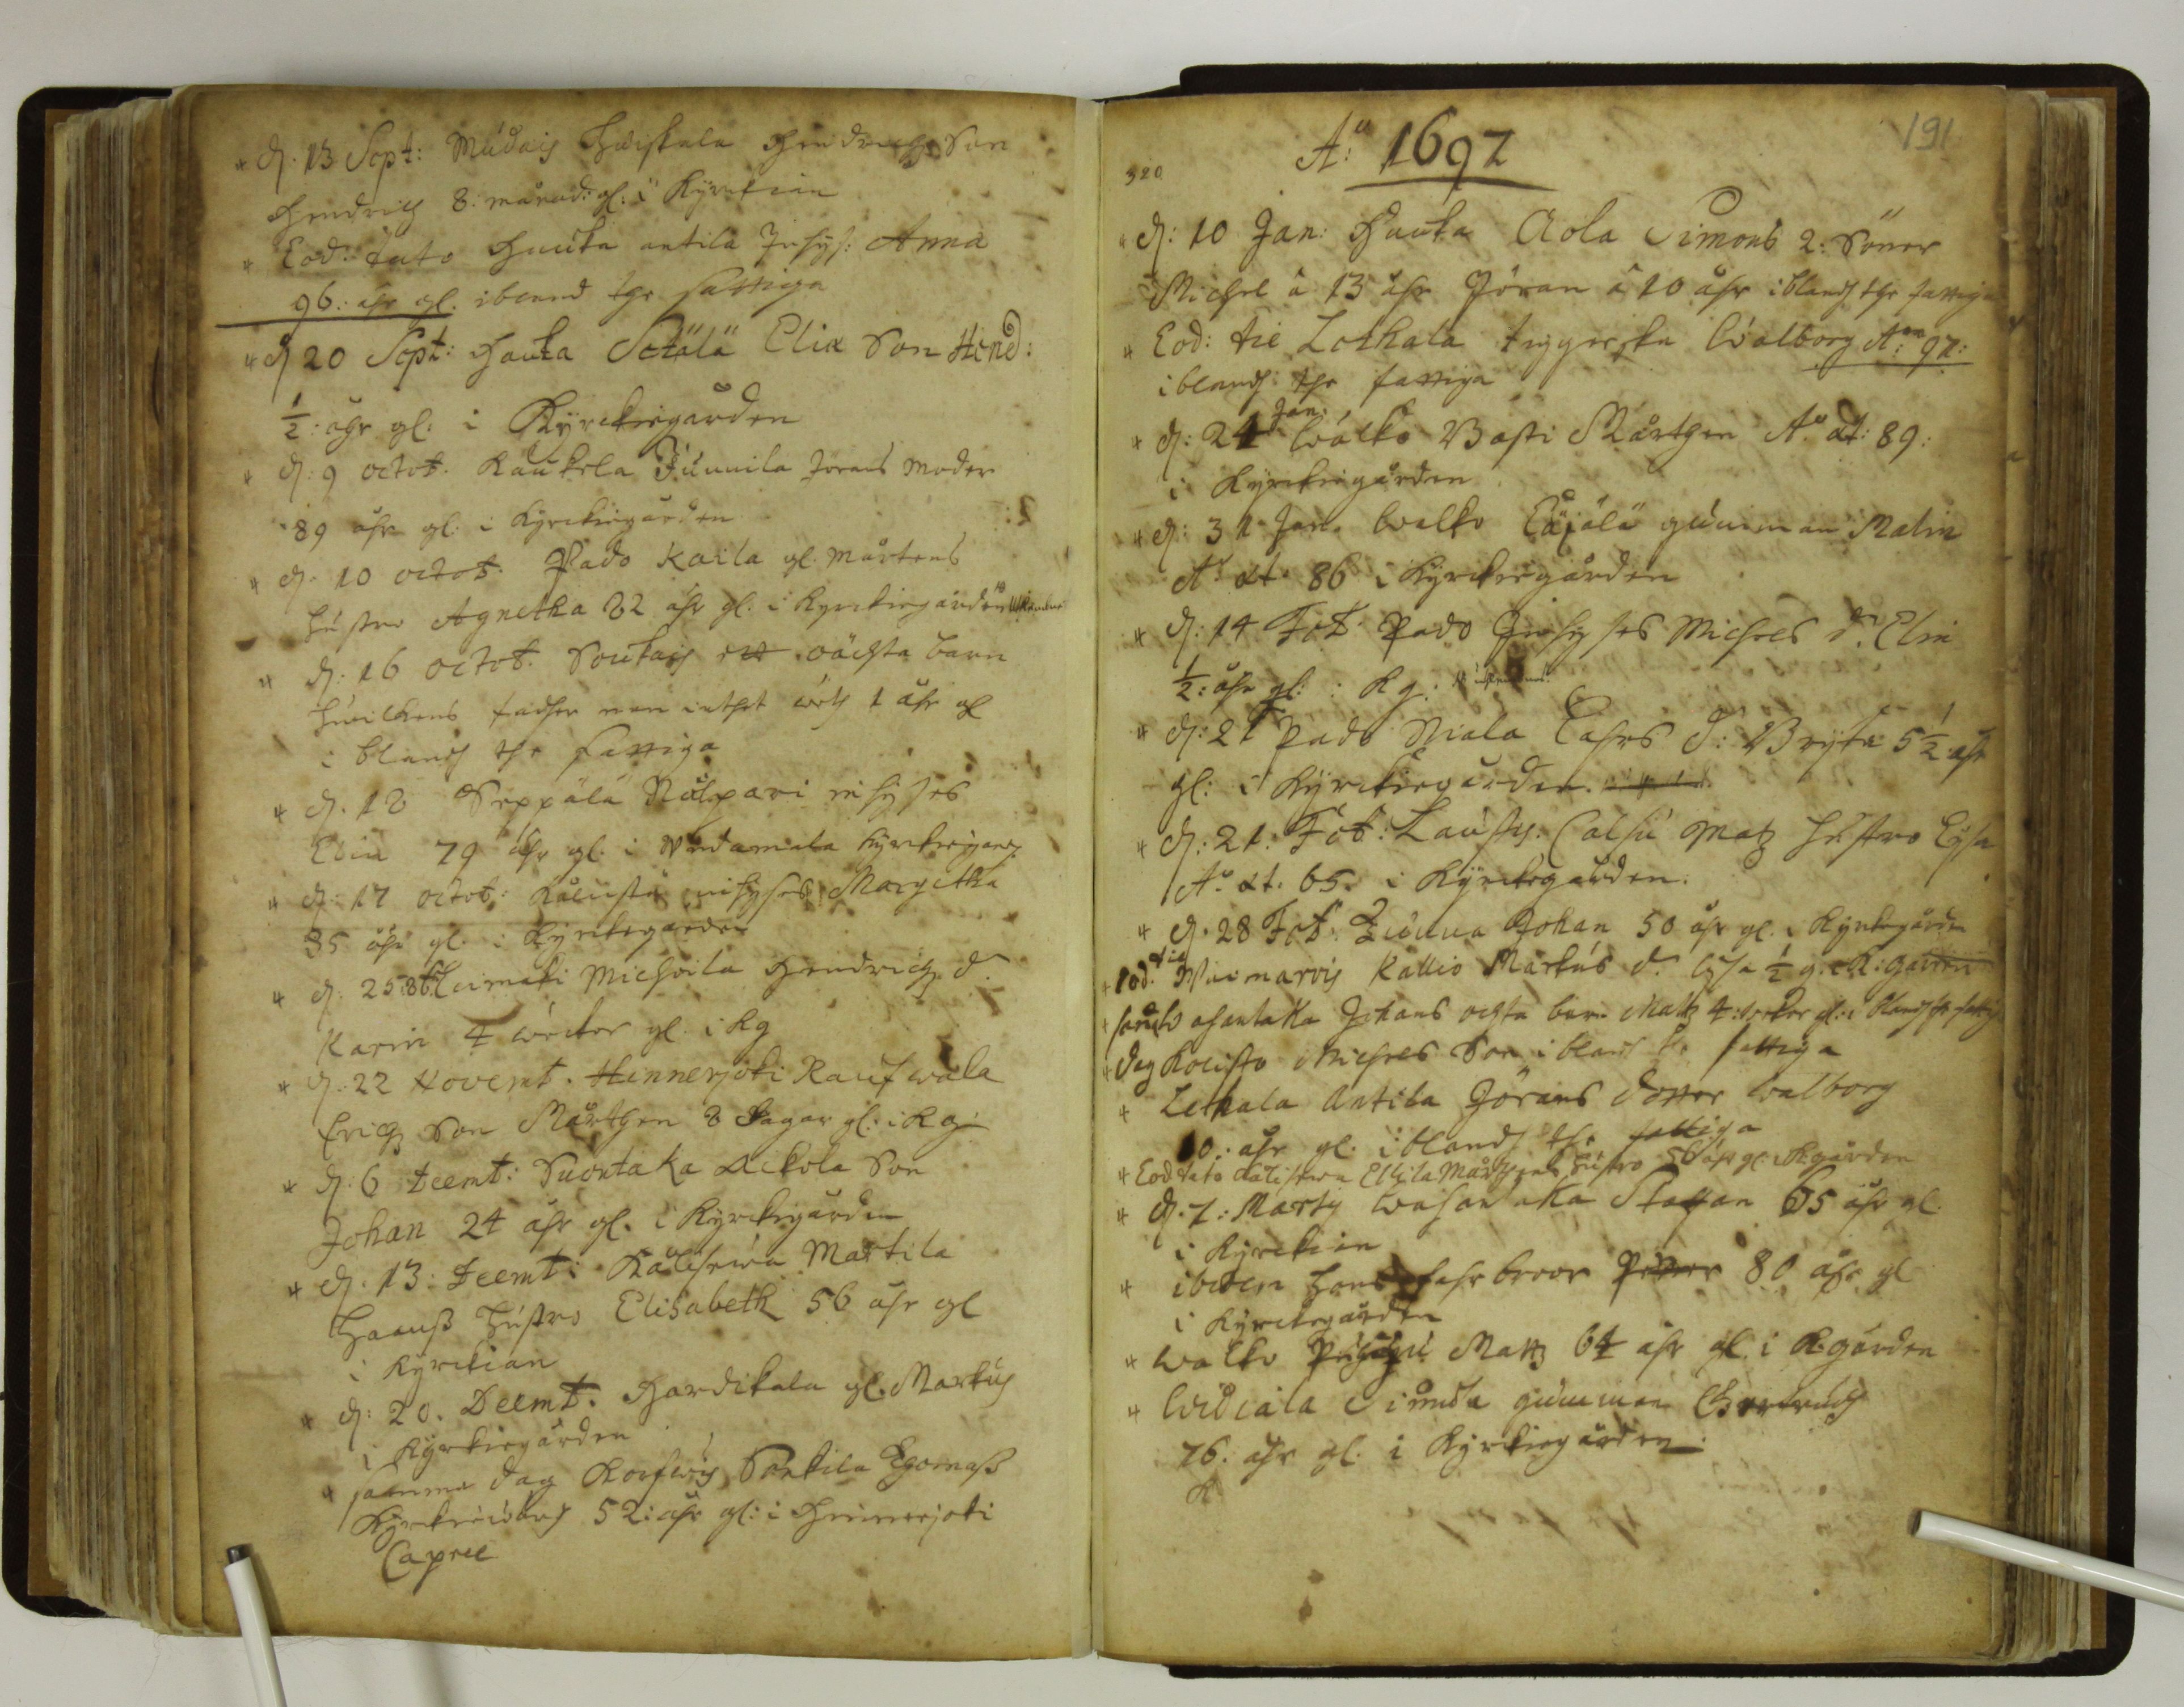 d. 13 Sept: Mudais Hwiskala Hendrichs Son
Hendrich 8: månad: gl: i Kyrkian
Eod: dato Hauka antila Inhys: Anna
96: åhr gl. ibland the fattiga
d 20 Sept: Hauka Sctälä Elix Son Hend:
½: åhr gl: i Kyrckiegården
d: 9 octob. Kaukela Junnila Jörans Moder
89 åhr gl: i Kyrckiegården
d. 10 octob. Pado Kaila gl. Mårtens
hustro Agnetha 82 åhr gl. i Kyrckiegården
d: 16 octob. Soukais ett oächta barn
hwilkens fader man inthet weth 1 åhr gl
i bland the fattiga
d. 18 Seppälä Nälpari inhyses
Elin 79 åhr gl. i Kyrkiegard.
d: 17 octob: inhyses Margetha
85 åhr gl. i Kyrkegården
d. 25 8b. Leimäki Michoila Hendrich d.
Karin 4 wecker gl. i Kg
d: 22 Novemb. Hinnerjoki Raufwola
Erich Son Mårthen 8 dagar gl: i Kg
d: 6 Decmb: Suontaka Ackola Son
Johan 24 åhr gl. i Kyrckegården
d. 13: Decmb: Kålisewa Martila
Hanuß hustro Elisabeth 56 åhr gl
i Kyrckian
d: 20. Decmb. Hardikala gl. Markus
i Kyrkiegården
samma dag Korfwois Sontila Thomaß
52: åhr gl: i Hinnerjoki
Capell
191
320
A:o 1697
d: 10 Jan: Hauka Aola Simons 2: Söner
Michel â 13 åhr Jöran â 10 åhr ibland the fattiga
Eod: die Lethala tiggerska Walborg A:o 97:
ibland: the fattiga
d: 24 Jan. Walko Basti Mårthen A:o æt: 89:
i Kyrckiegården
d: 31 Jan. Walko Eäjälä gumman Malin
A:o æt. 86 i Kyrckiegården
d: 14 Feb. Pado Inhyses Michels d. Elin
½: åhr gl: : Kg.
d: 21 Pado Niala Eahrs d: Bryta 5½ åhr
gl: i Kyrckiegården.
d: 21. Feb: Lausth: Calsu Matz hustro Lysa
A:o æt. 65. i Kyrckegården.
d. 28 Feb. Junna Johan 50 åhr gl. i Kyrkegården
Eod. die Wiimarois Kallio Markus d. Lysa ½ g. i K:gården
Johans ochta barn Matz 4: weker gl: i bland the fattig
dag Kolisto Michels Son ibland the fattiga
Lethala Antila Jörans dotter Walborg
10: åhr gl. ibland the fattiga
Eod dato Kalisewa Ellila Mårthens hustro 50 åhr gl. i Kgården
d. 7: Martij Wasarakka Staffan 65 åhr gl.
i Kyrckian
ibidem hans fahrbroor Petter 80 åhr gl
i Kyrckegården
Walko Matz 64 åhr gl. i K:gården
Widiala Simula gumman Gertrudh
76: åhr gl. i Kyrckiegården.